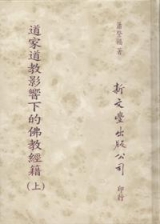 蕭登福 著
道家道教影響下的佛教經籍(上)
新文豐出版公司
印行